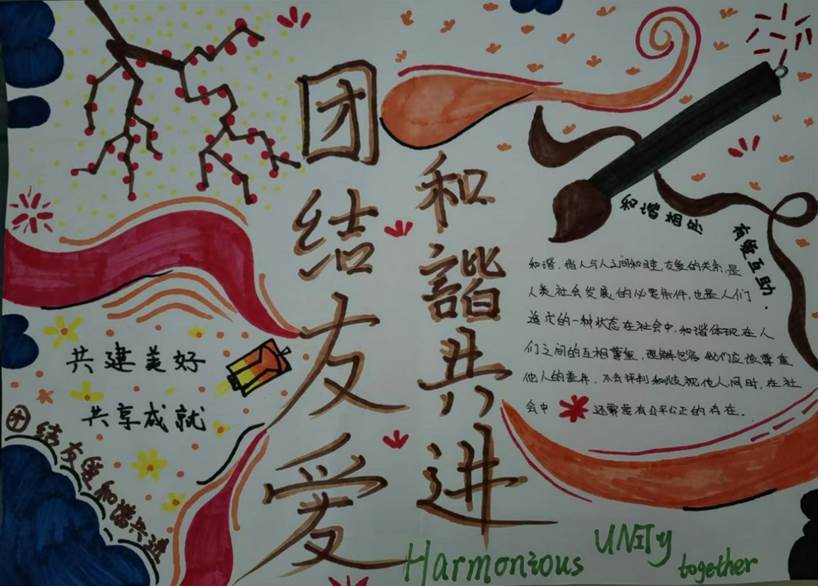 团结友爱
和谐共进
和谐相处
友爱互助.
和谐,指人与人之间和睦,友爱的关系,是
人类社会发展的必要条件,也是人们
追求的一种状态在社会中,和谐体现在人
们之间的互相尊重,理解包容 我们应该尊重
他人的差异,不去评判和歧视他人同时,在社
会中 还需要有公平公正的存在.
共建美好
共享成就
团结友爱和谐共进
Harmonious UNITy together